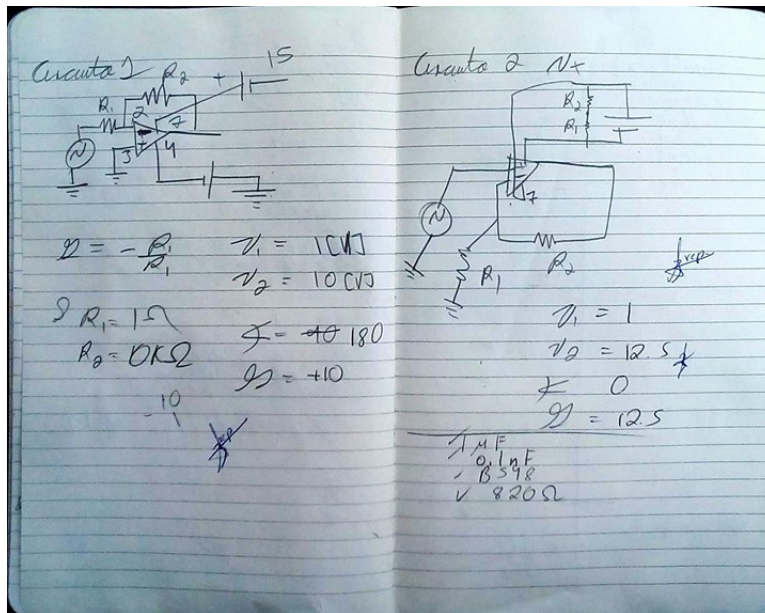 Circuito 1
R2
+
15
R1
2
7
3
4
N
R1 = 1Ω
R2 = 10KΩ
V1 = 1[V]
V2 = 10[V]
180
= +10
-10
1
Circuito 2 V+
R2
R1
7
N
R1
R2
V1 = 1
V2 = 12.5
0
= 12.5
1 μF
0.1nF
B548
820Ω